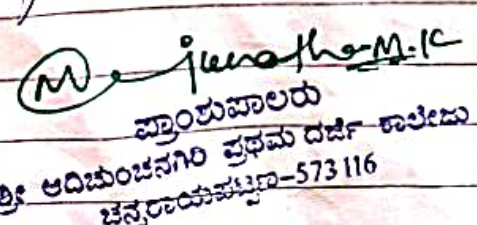 Manjunatha M.K
ಪ್ರಾಂಶುಪಾಲರು
ಶ್ರೀ ಆದಿಚುಂಚನಗಿರಿ ಪ್ರಥಮ ದರ್ಜೆ ಕಾಲೇಜು
ಚನ್ನರಾಯಪಟ್ಟಣ-573 116